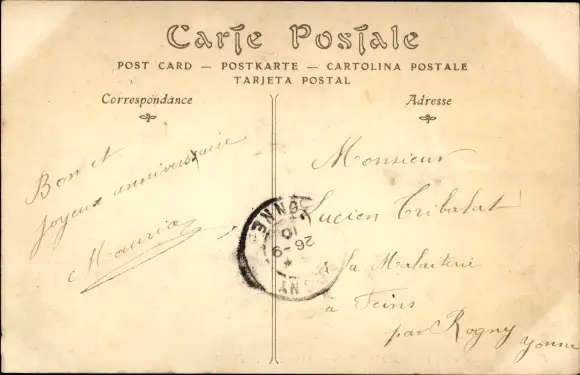 Carte Postale
POST CARD — POSTKARTE — CARTOLINA POSTALE
TARJETA POSTAL
Correspondance
Adresse
Bon et
joyeux anniversaire
Maurice
Monsieur
Lucien Tribalat
à la Malaiterie
à Feins
par Rogny
Yonne
ONNE
10
26-9
NY